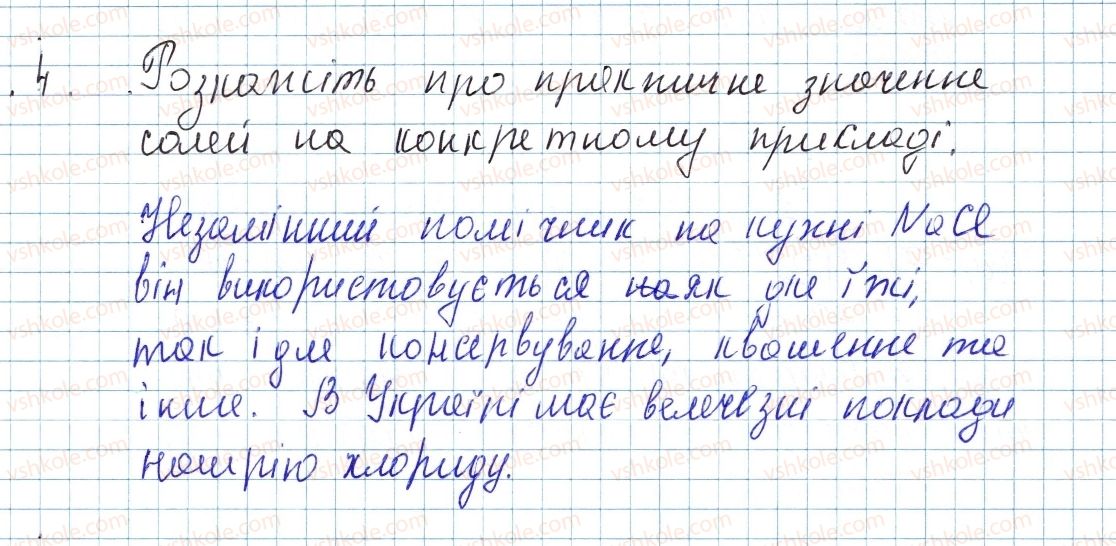 4. Розкажіть про практичне значення
солей на конкретному прикладі.
Незамінний помічник на кухні NaCl
він використовується на як для їжі,
так і для консервування, квашення та
інше. В Україні має величезні поклади
натрію хлориду.